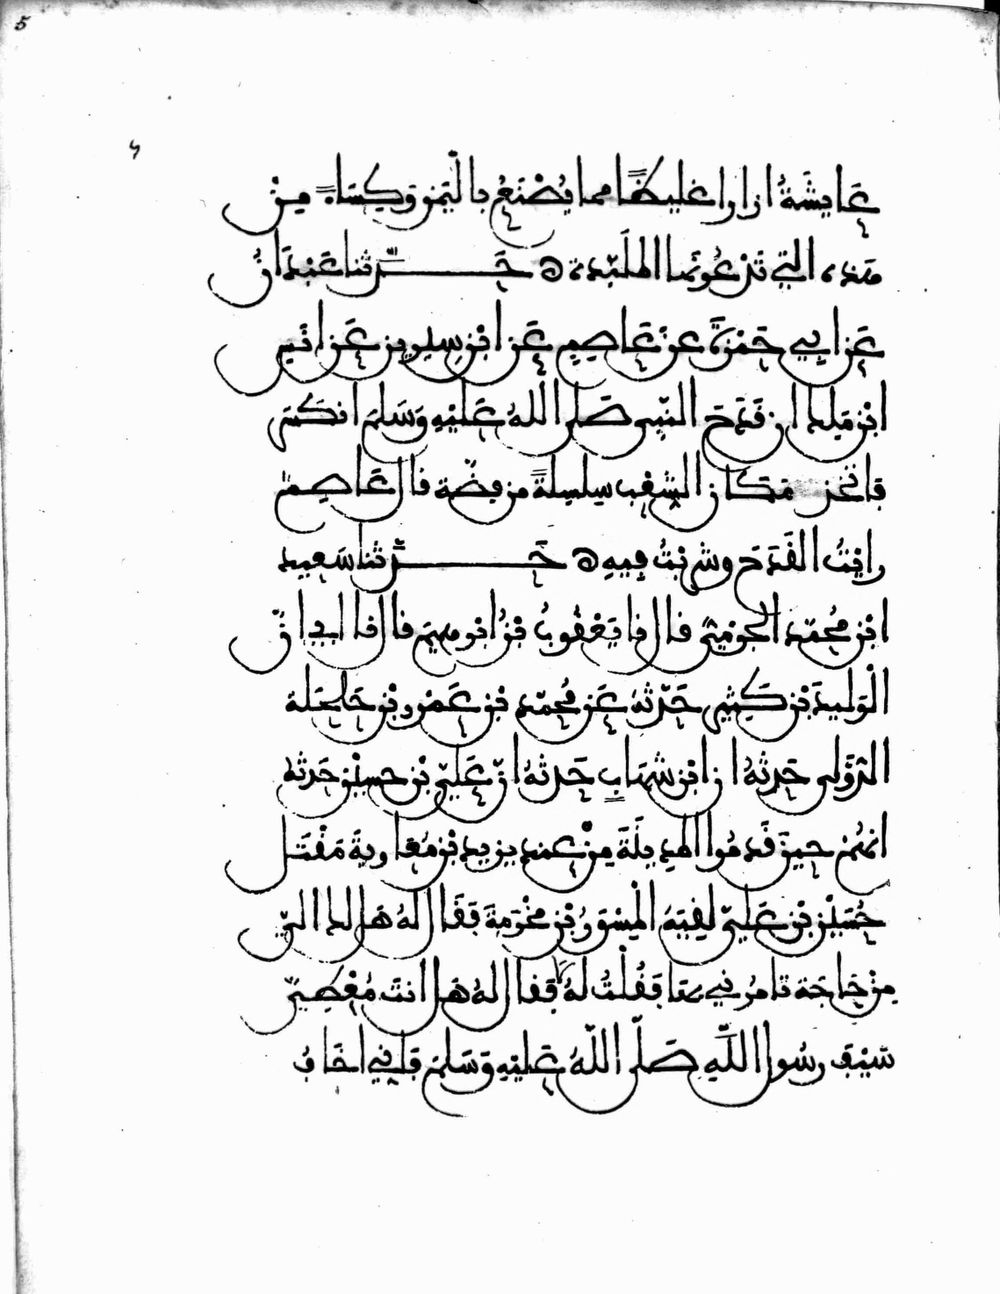 5
عَايِشَةُ ازارا غليظًا مما يُصْنَعُ باليَمَنِ وَكِسَاءً مِنْ
هَذِهِ التي تَدْعُونَهَا المُلَبَّدة ه حَدَّثنا عَبْدَانُ
عَن ابِي حَمْزَةَ عن عَاصِمٍ عَن ابْنِ سِيرِين عَن انَسِ
ابْنِ مَلِك ان قَدَحَ النَّبِي صَلى اللهُ عَلَيْهِ وَسَلمَ انكَسَرَ
فاتخذ مَكَان الشعْبِ سِلسِلةً من فِضّة قال عَاصِمٌ
رايْتُ القَدَحَ وشربْتُ فِيهِ ه حَدَّثنا سَعِيد
ابْن مُحمّد الجَرْمِيُّ قال نا يَعْقُوبُ بْنُ ابْرهِيمَ قال نا ابي انَّ
الْوَلِيدَ بْن كَثِيرٍ حَدّثهُ عَن مُحمّد بْنِ عَمْرِو بْنِ حَلحَلة
الدؤَلي حَدثهُ ان ابْن شِهَابٍ حَدثهُ انّ عَلِيّ بْن حسيْن حَدثهُ
انهُمْ حِينَ قَدمُوا المدِينَةَ مِنْ عِند يزِيد بْنِ مُعَاوِيةَ مَقْتَلَ
حُسَيْنِ بْنِ عَلِيّ لقِيَهُ المِسْوَرُ بْن مَخْرَمةَ فَقَال لهُ هَل لك الَيّ
مِنْ حَاجَة تامُرُني بهَا فَقُلْتُ لهُ لا فقال لهُ هَل انتَ مُعْطِيَّ
سَيْفَ رسُولِ اللّهِ صَلّى اللّهُ عَلَيْهِ وَسَلمَ فإني اخَافُ